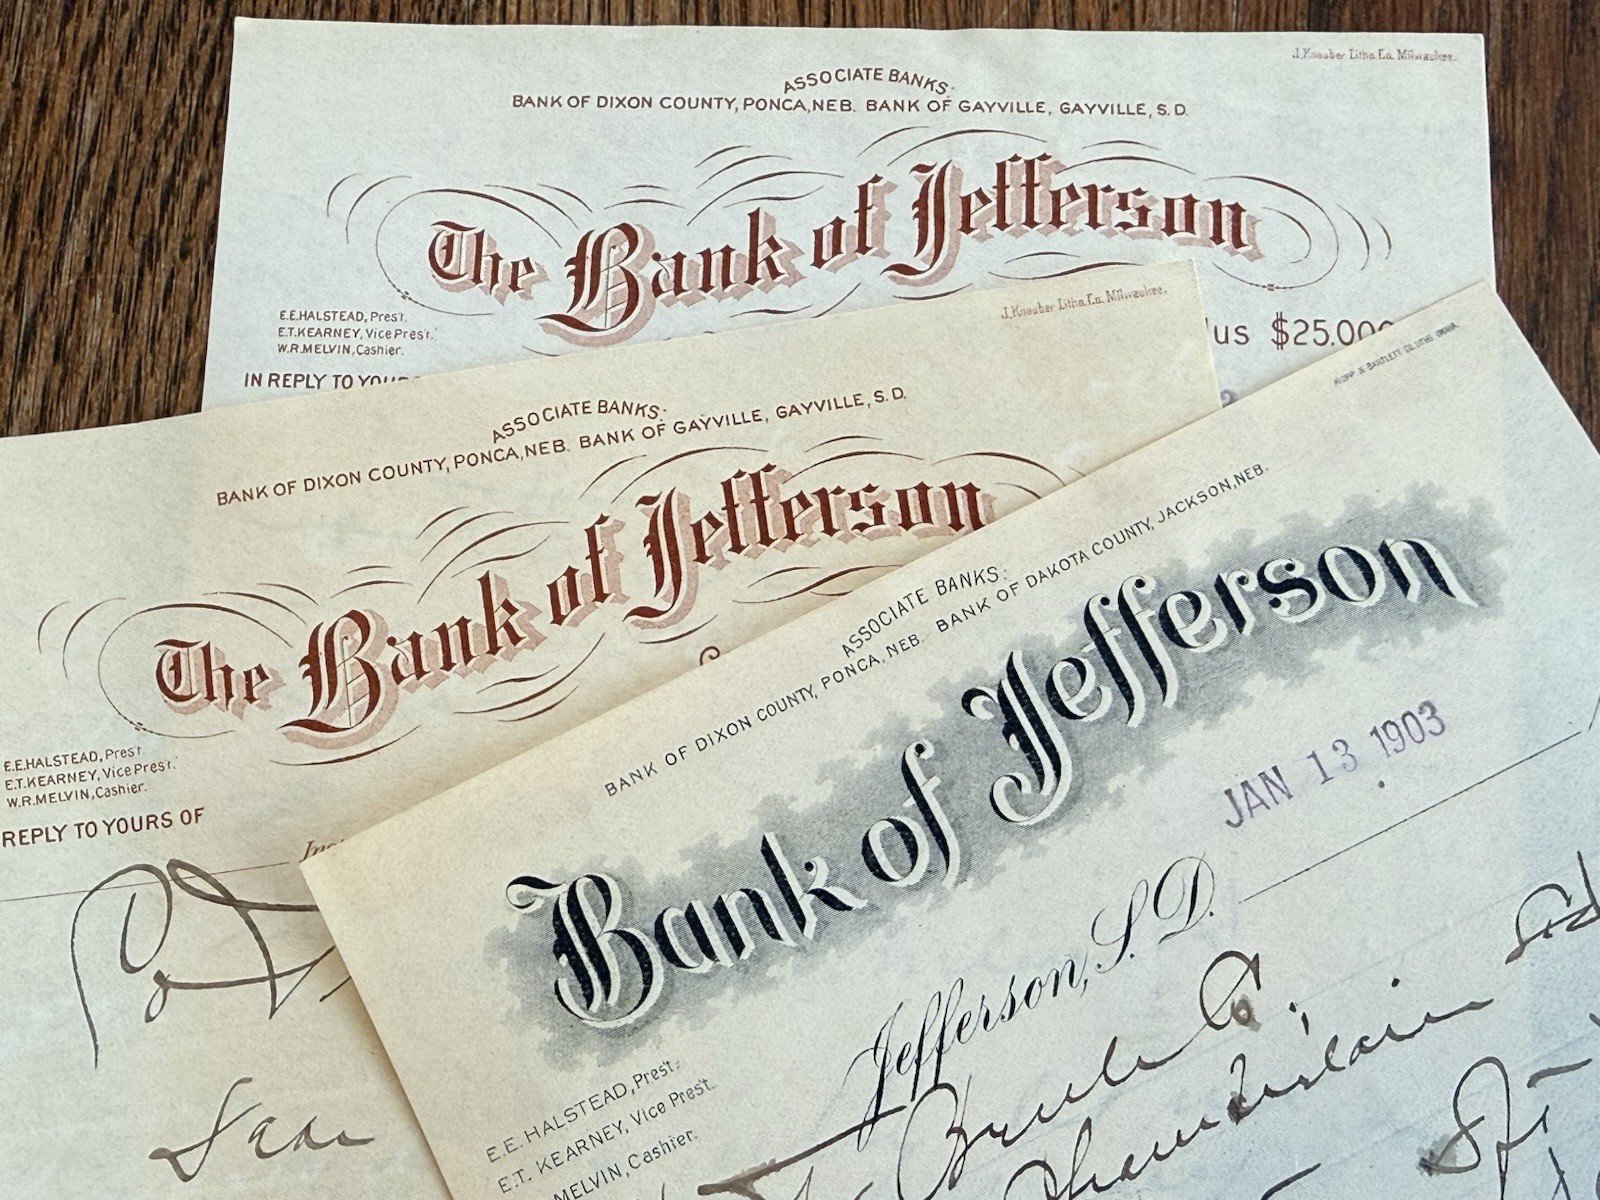 J. Knauber Litho. Co. Milwaukee.
ASSOCIATE BANKS:
BANK OF DIXON COUNTY, PONCA, NEB. BANK OF GAYVILLE, GAYVILLE, S.D.
The Bank of Jefferson
E.E. HALSTEAD, Pres't.
E.T. KEARNEY, Vice Pres't.
W.R. MELVIN, Cashier.
$25.000
IN REPLY TO YOURS
J. Knauber Litho. Co. Milwaukee.
ASSOCIATE BANKS:
BANK OF DIXON COUNTY, PONCA, NEB. BANK OF GAYVILLE, GAYVILLE, S.D.
The Bank of Jefferson
E.E. HALSTEAD, Pres't.
E.T. KEARNEY, Vice Pres't.
W.R. MELVIN, Cashier.
REPLY TO YOURS OF
ASSOCIATE BANKS:
BANK OF DIXON COUNTY, PONCA, NEB. BANK OF DAKOTA COUNTY, JACKSON, NEB.
Bank of Jefferson
JAN 13 1903
Jefferson, S.D.
E.E. HALSTEAD, Pres't.
E.T. KEARNEY, Vice Pres't.
MELVIN, Cashier.
Chamberlain